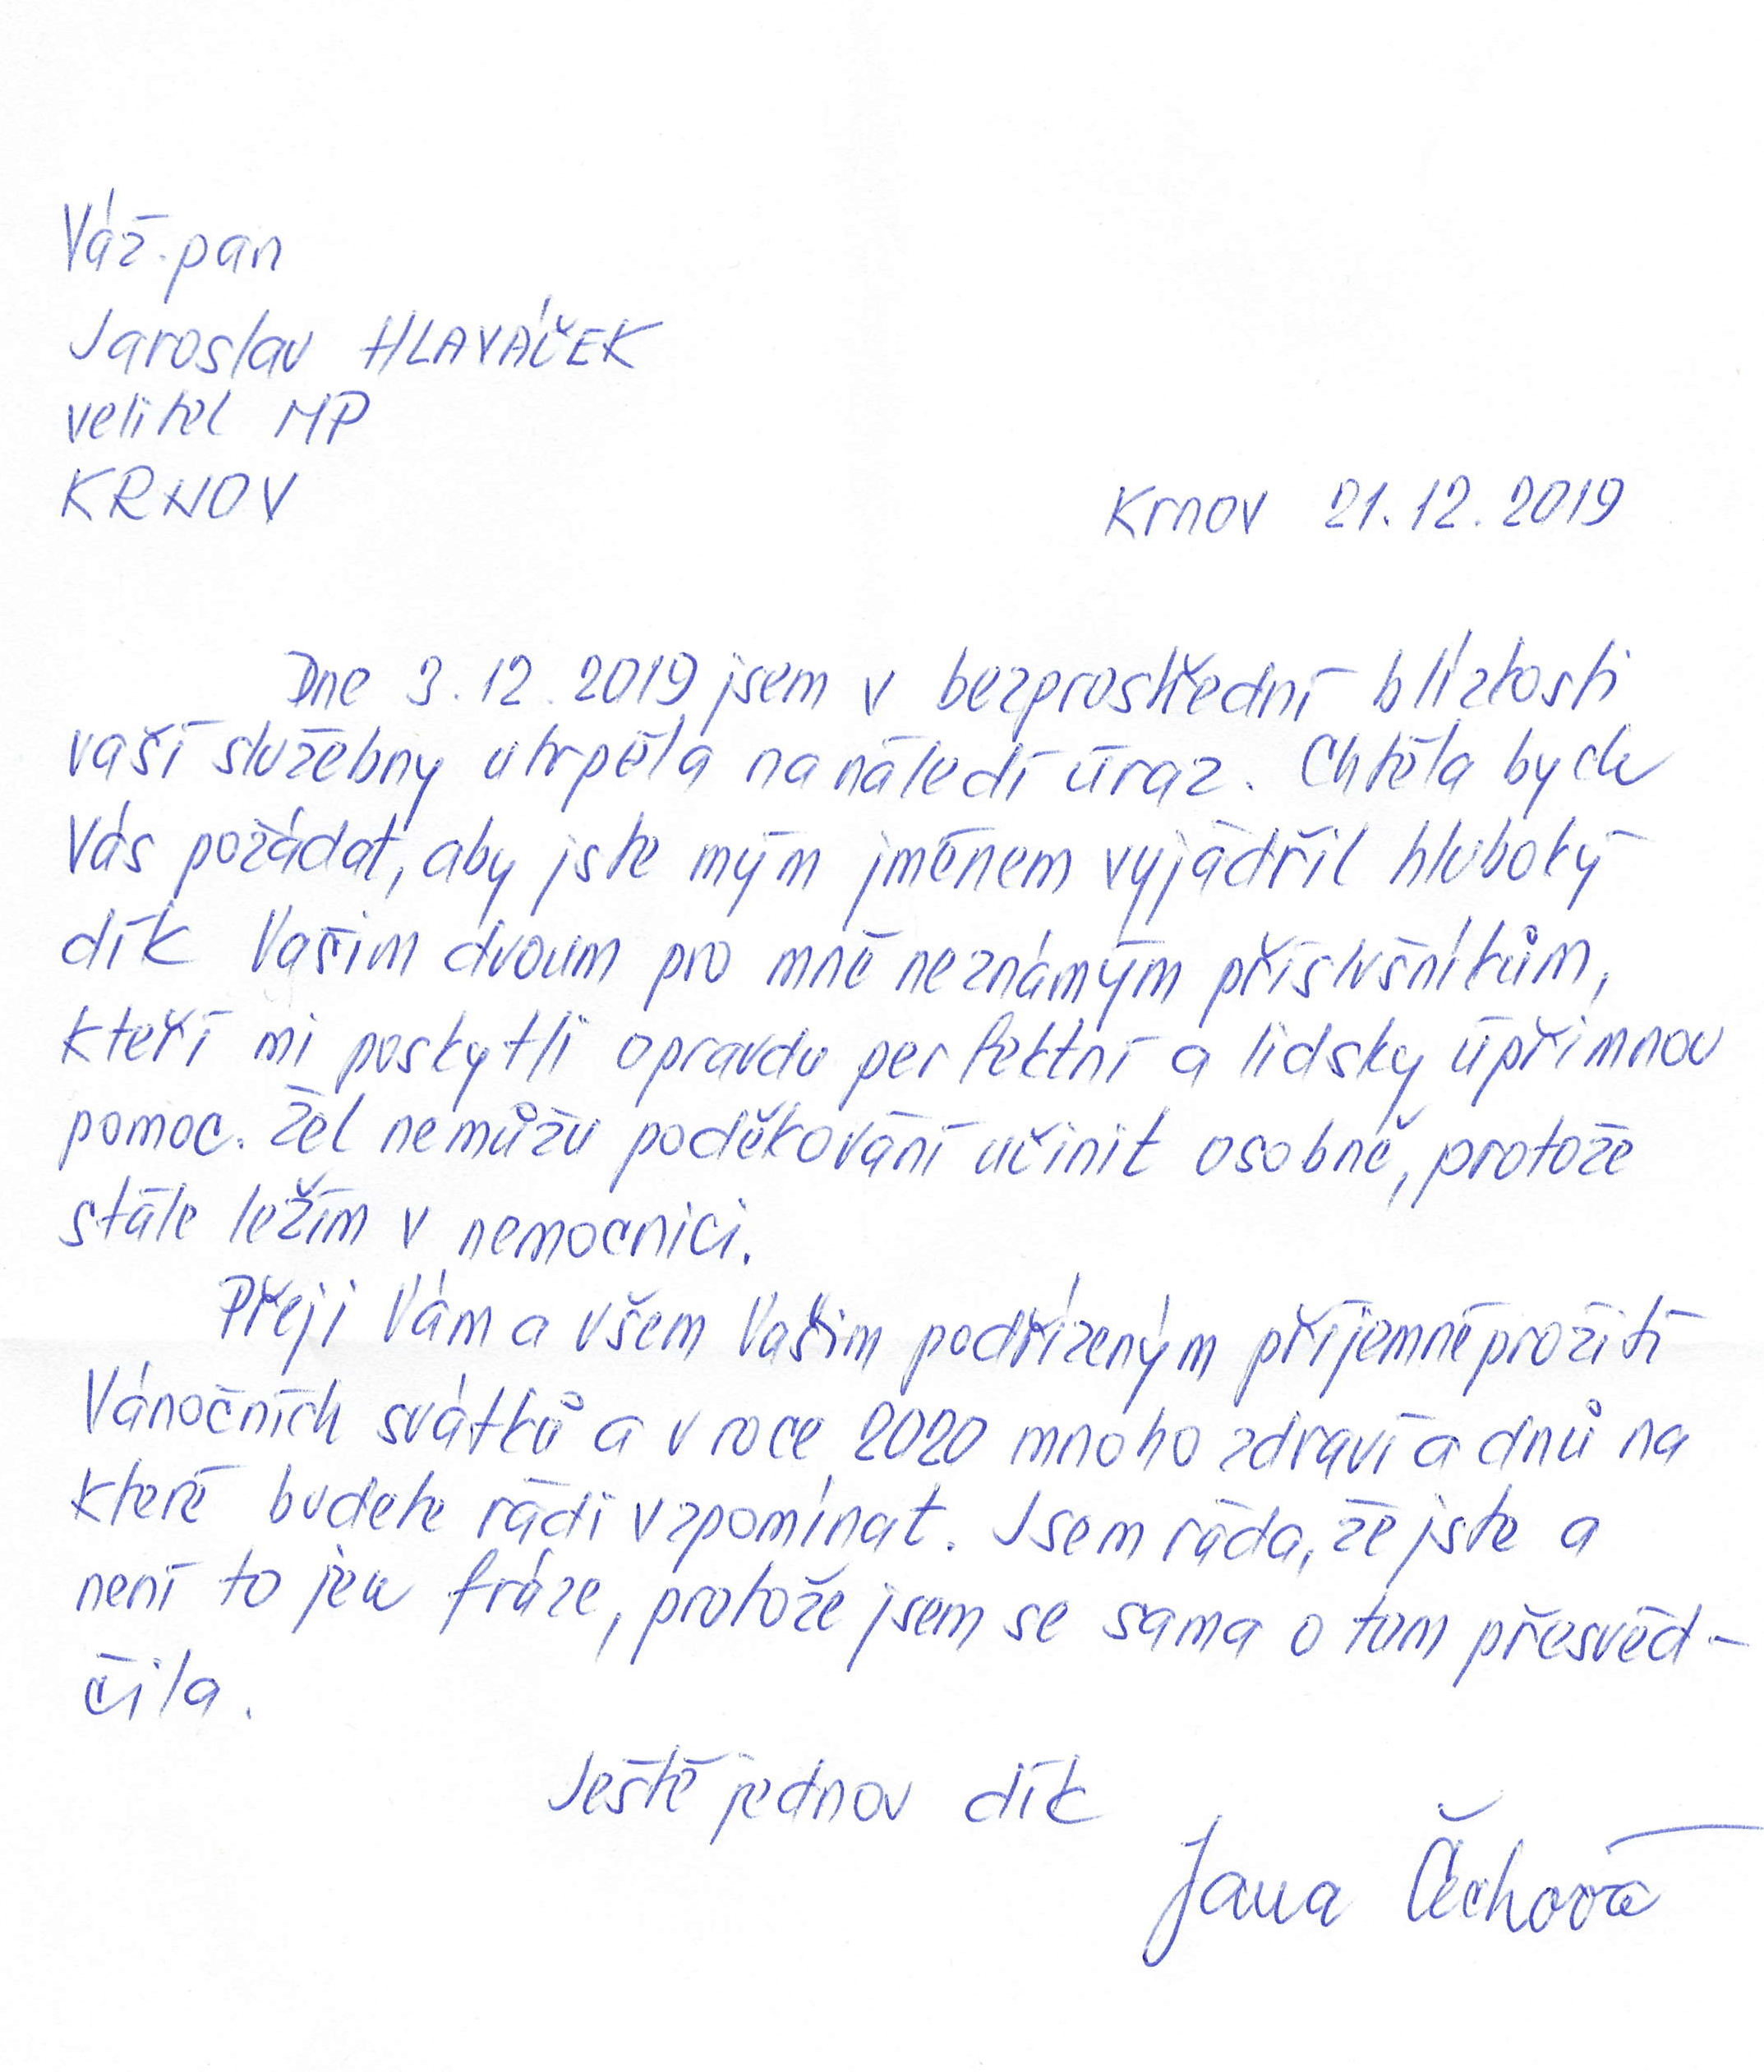 Váž. pan
Jaroslav HLAVÁČEK
velitel MP
KRNOV
Krnov 21.12.2019
Dne 3.12.2019 jsem v bezprostřední blízkosti
vaší služebny utrpěla na náledí úraz. Chtěla bych
Vás požádat, aby jste mým jménem vyjádřil hluboký
dík Vašim dvoum pro mně neznámým příslušníkům,
kteří mi poskytli opravdu perfektní a lidsky upřímnou
pomoc. Žel nemůžu poděkování učinit osobně, protože
stále ležím v nemocnici.
Přeji Vám a všem Vašim podřízeným příjemné prožití
Vánočních svátků a v roce 2020 mnoho zdraví a dnů na
které budete rádi vzpomínat. Jsem ráda, že jste a
není to jen fráze, protože jsem se sama o tom přesvěd-
čila.
Ještě jednou dík
Jana Čechová